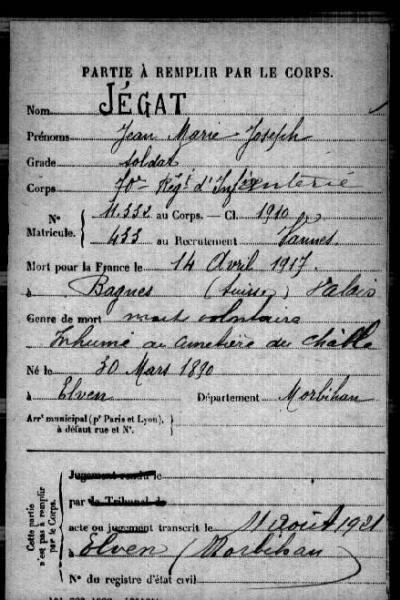 PARTIE À REMPLIR PAR LE CORPS.
Nom JÉGAT
Prénoms Jean Marie Joseph
Grade soldat
Corps 70me Régt d'Infanterie
Nº Matricule. 11.332 au Corps. — Cl. 1910
433 au Recrutement Vannes.
Mort pour la France le 14 Avril 1917.
à Bagnes (Suisse) Valais
Genre de mort mort volontaire
Inhumé au cimetière du Châble
Né le 30 Mars 1890
à Elven Département Morbihan
Arrt municipal (pr Paris et Lyon),
à défaut rue et Nº.
Cette partie n'est pas à remplir par le Corps.
Jugement rendu le
par le Tribunal de
acte ou jugement transcrit le 11 août 1921
à Elven (Morbihan)
Nº du registre d'état civil